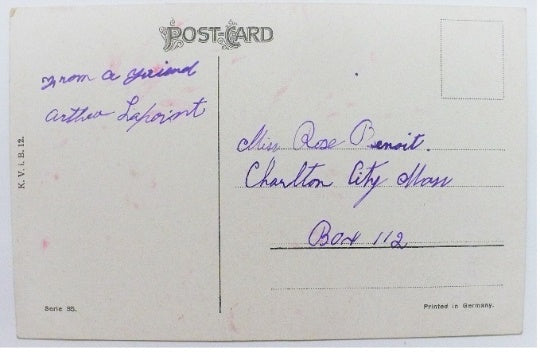 POST-CARD
From a friend
Arthur Lapoint
Miss Rose Benoit.
Charlton City Mass
Box 112
K. V. i. B. 12.
Serie 55.
Printed in Germany.